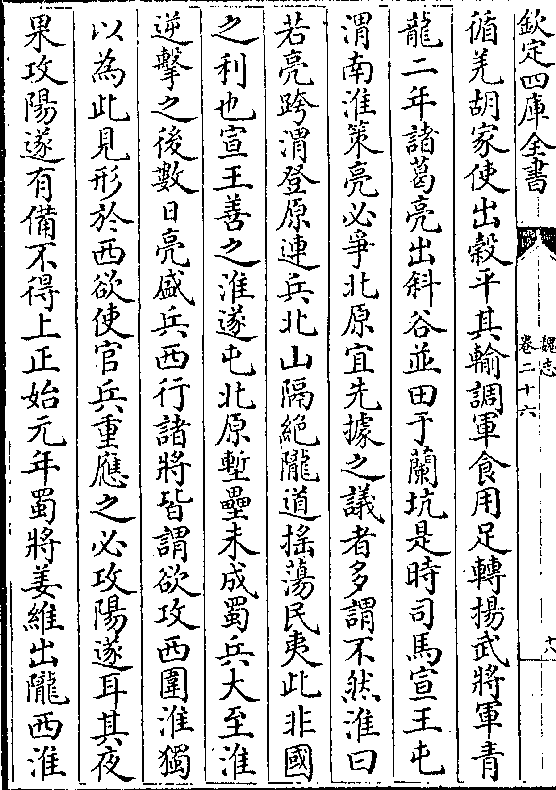 欽定四庫全書
魏志
卷二十六
十八
循羌胡家使出穀平其輸調軍食用足轉揚武將軍青
龍二年諸葛亮出斜谷並田于蘭坑是時司馬宣王屯
渭南淮策亮必爭北原宜先據之議者多謂不然淮曰
若亮跨渭登原連兵北山隔絶隴道揺蕩民夷此非國
之利也宣王善之淮遂屯北原塹壘未成蜀兵大至淮
逆擊之後數日亮盛兵西行諸將皆謂欲攻西圍淮獨
以為此見形於西欲使官兵重應之必攻陽遂耳其夜
果攻陽遂有備不得上正始元年蜀將姜維出隴西淮